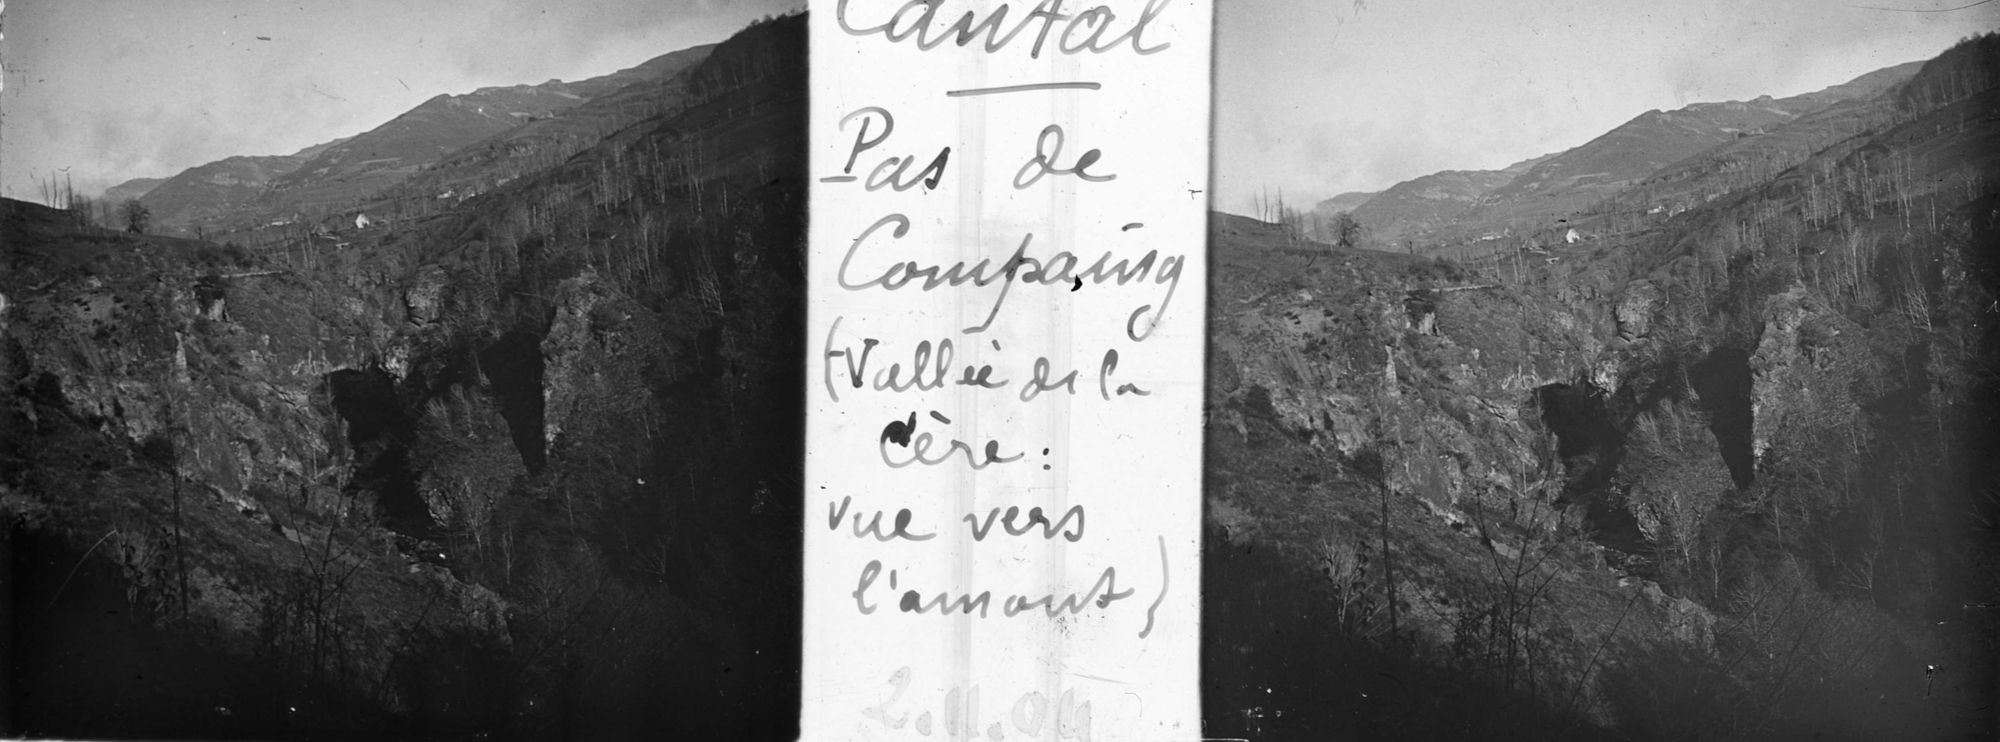 Cantal
Pas de
Compaing
(Vallée de la
Cère :
vue vers
l'amont)
2.11.04